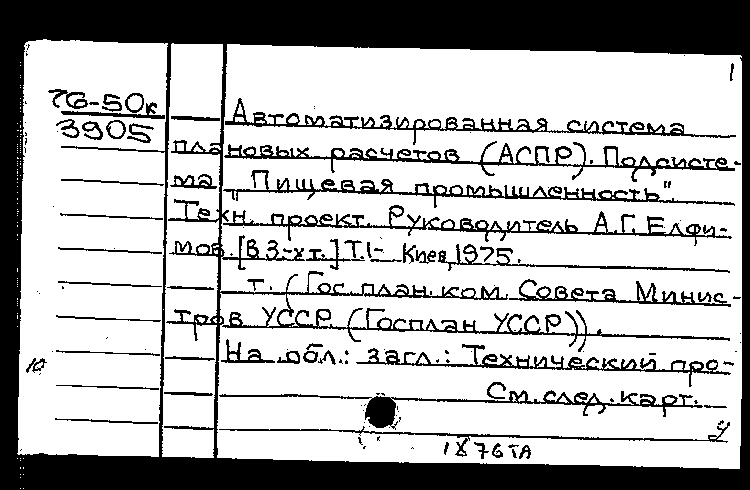 1
76-50к
3905
Автоматизированная система
плановых расчетов (АСПР). Подсисте-
ма "Пищевая промышленность".
Техн. проект. Руководитель А.Г. Елфи-
мов. [В 3-х т.] Т.1- Киев, 1975.
т. (Гос. план. ком. Совета Минис-
тров УССР. (Госплан УССР)).
На обл.: загл.: Технический про-
10
См. след. карт.
У
IX 76 ТА